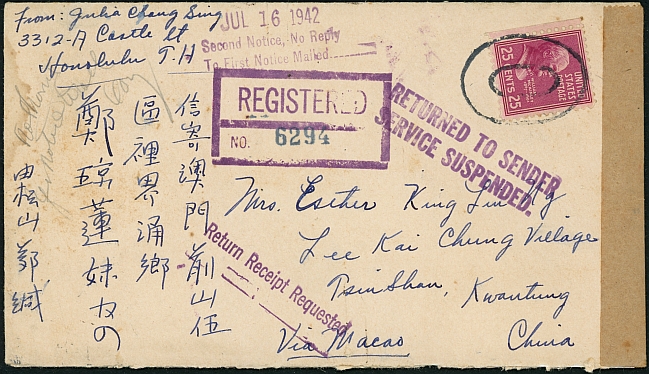 From: Julia Chang Sing
3312-A Castle St
Honolulu T.H
JUL 16 1942
Second Notice, No Reply
To First Notice Mailed
REGISTERED
NO. 6294
RETURNED TO SENDER
SERVICE SUSPENDED.
UNITED STATES POSTAGE
25 CENTS 25
Mrs. Esther King
Lee Kai Chung Village
TsinShan, Kwantung
China
Via Macao
Return Receipt Requested
信寄澳門前山伍
區裡界涌鄉
鄭琼蓮妹收
由松山鄭緘